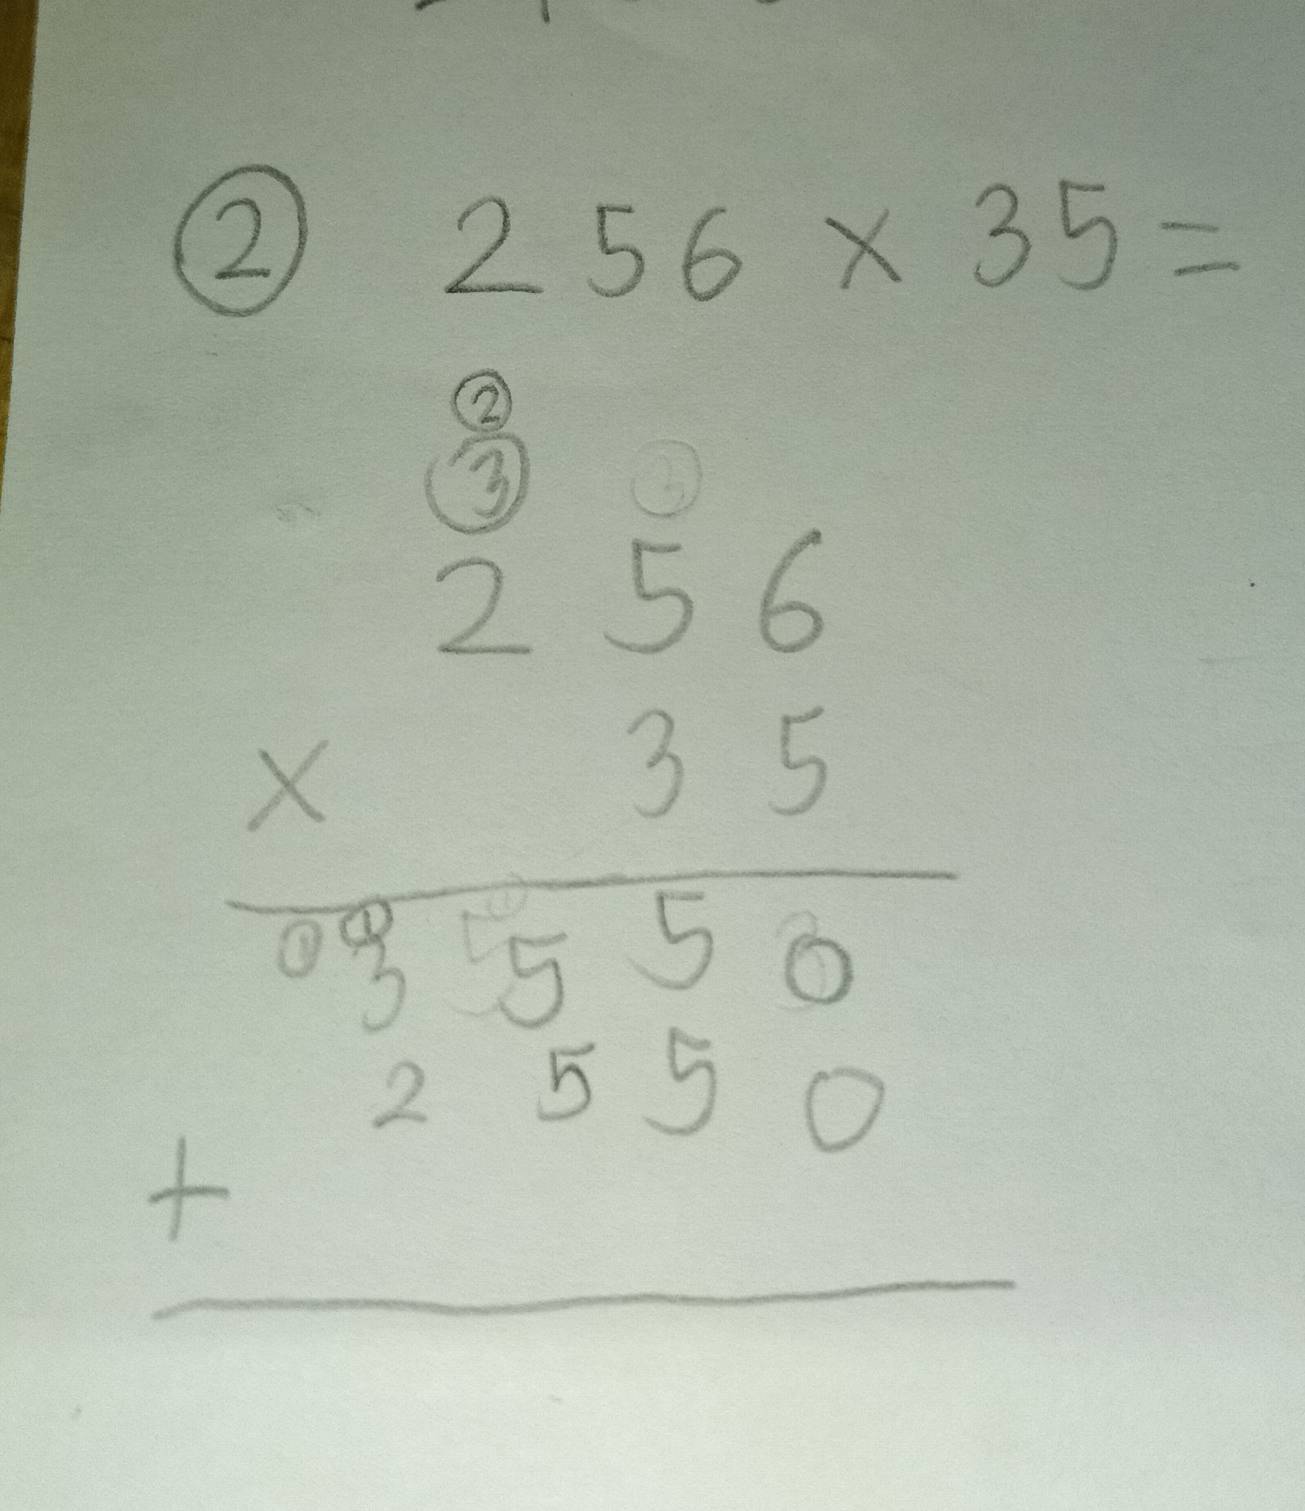 ② 256 × 35 =
②
③
2 5 6
× 3 5
① ①
3 5 5 0
2 5 5 0
+